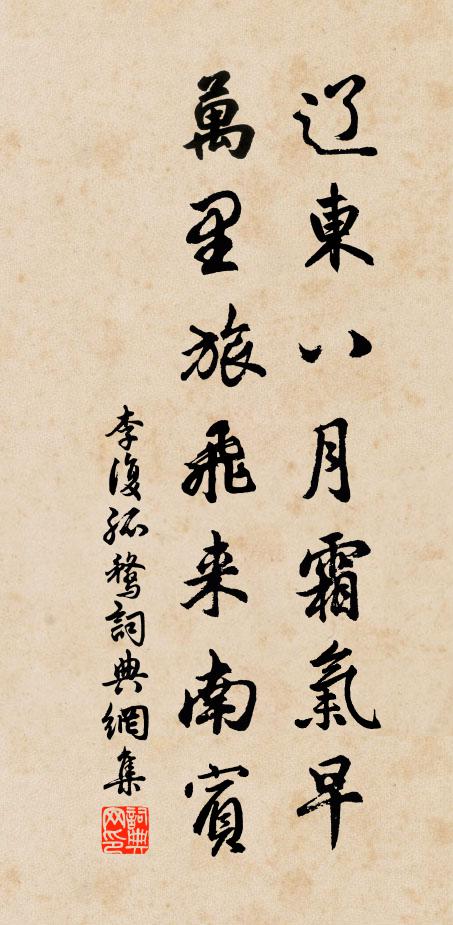 辽東八月霜氣早
萬里旅飛来南賓
李復孤鶩詞典網集
詞典网印